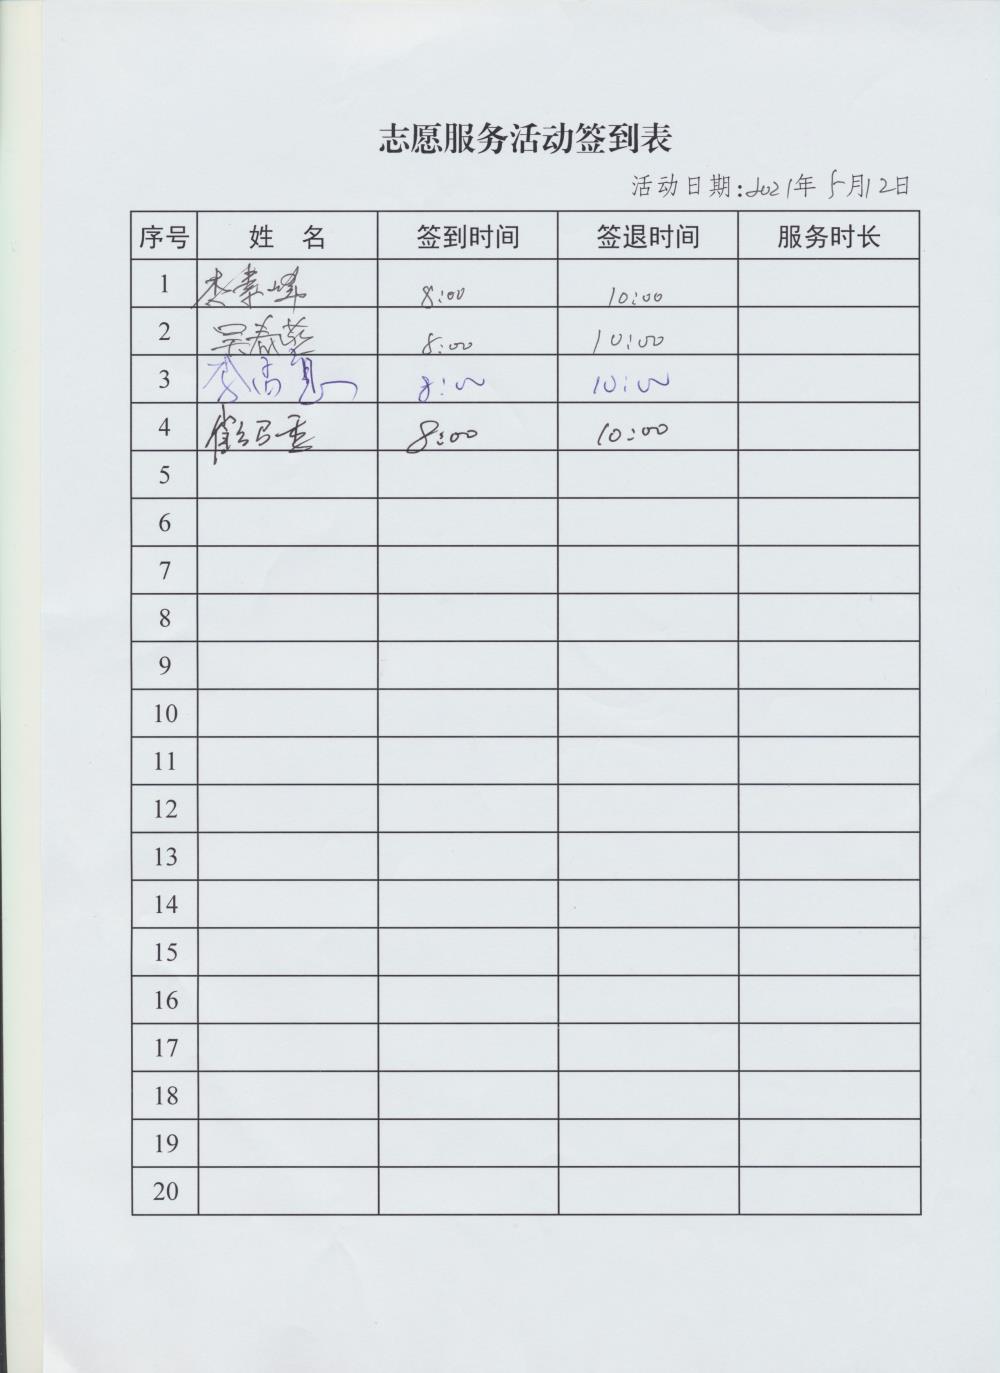 志愿服务活动签到表
活动日期:2021年5月12日
序号 姓 名 签到时间 签退时间 服务时长
1 8:00 10:00
2 吴春燕 8:00 10:00
3 8:00 10:00
4 8:00 10:00
5
6
7
8
9
10
11
12
13
14
15
16
17
18
19
20